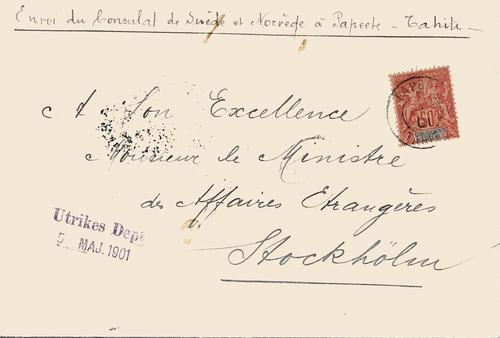 Envoi du Consulat de Suède et Norvège à Papeete - Tahiti -
A Son Excellence
Monsieur le Ministre
des Affaires Etrangères
Stockholm
Utrikes Dep
MAJ. 1901